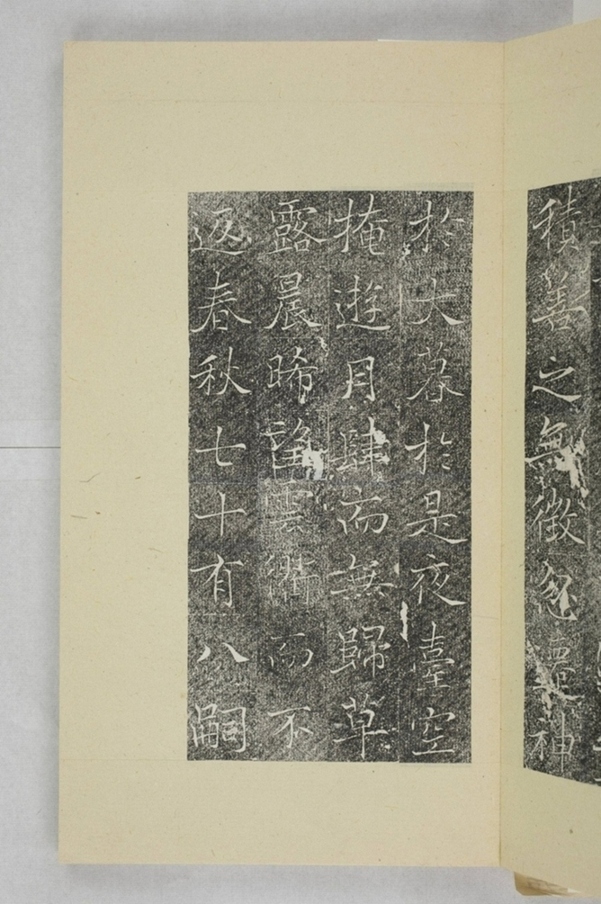 積善之無徵忽遺神
於大暮於是夜臺空
掩遊月肆而無歸草
露晨晞望雲衢而不
返春秋七十有八嗣